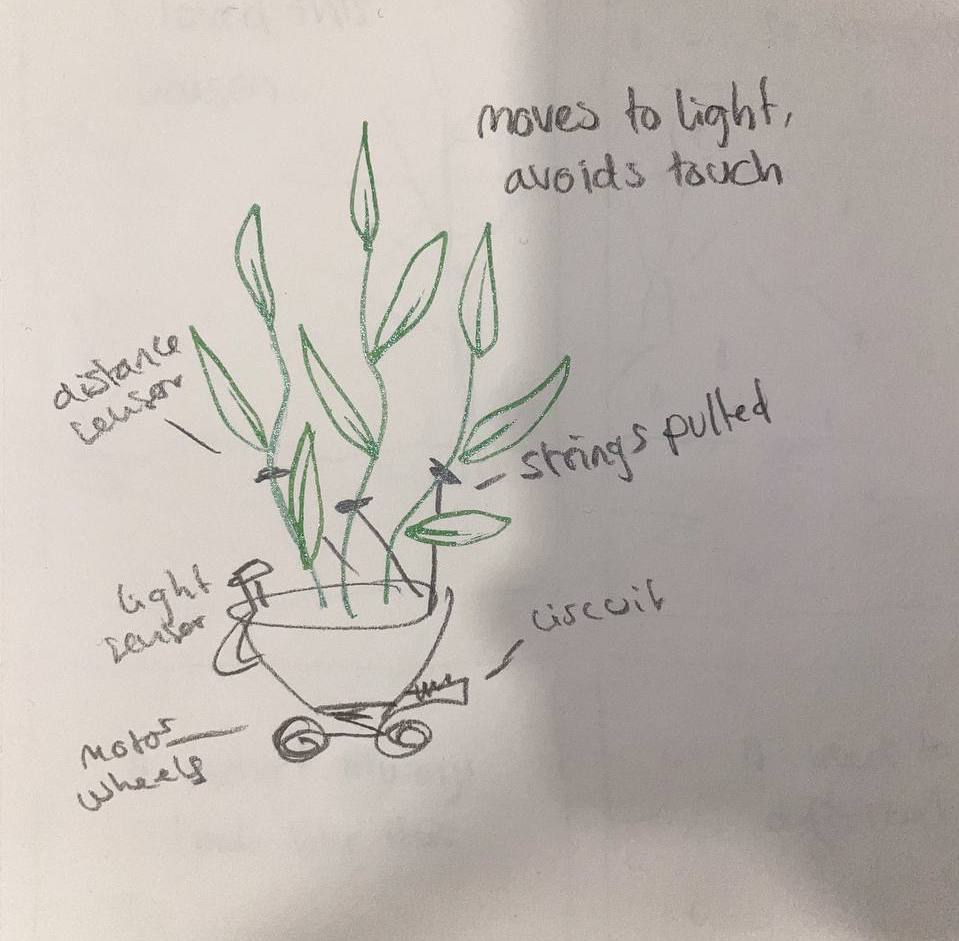 moves to light,
avoids touch
distance
sensor
strings pulled
light
sensor
circuit
Motor
wheels